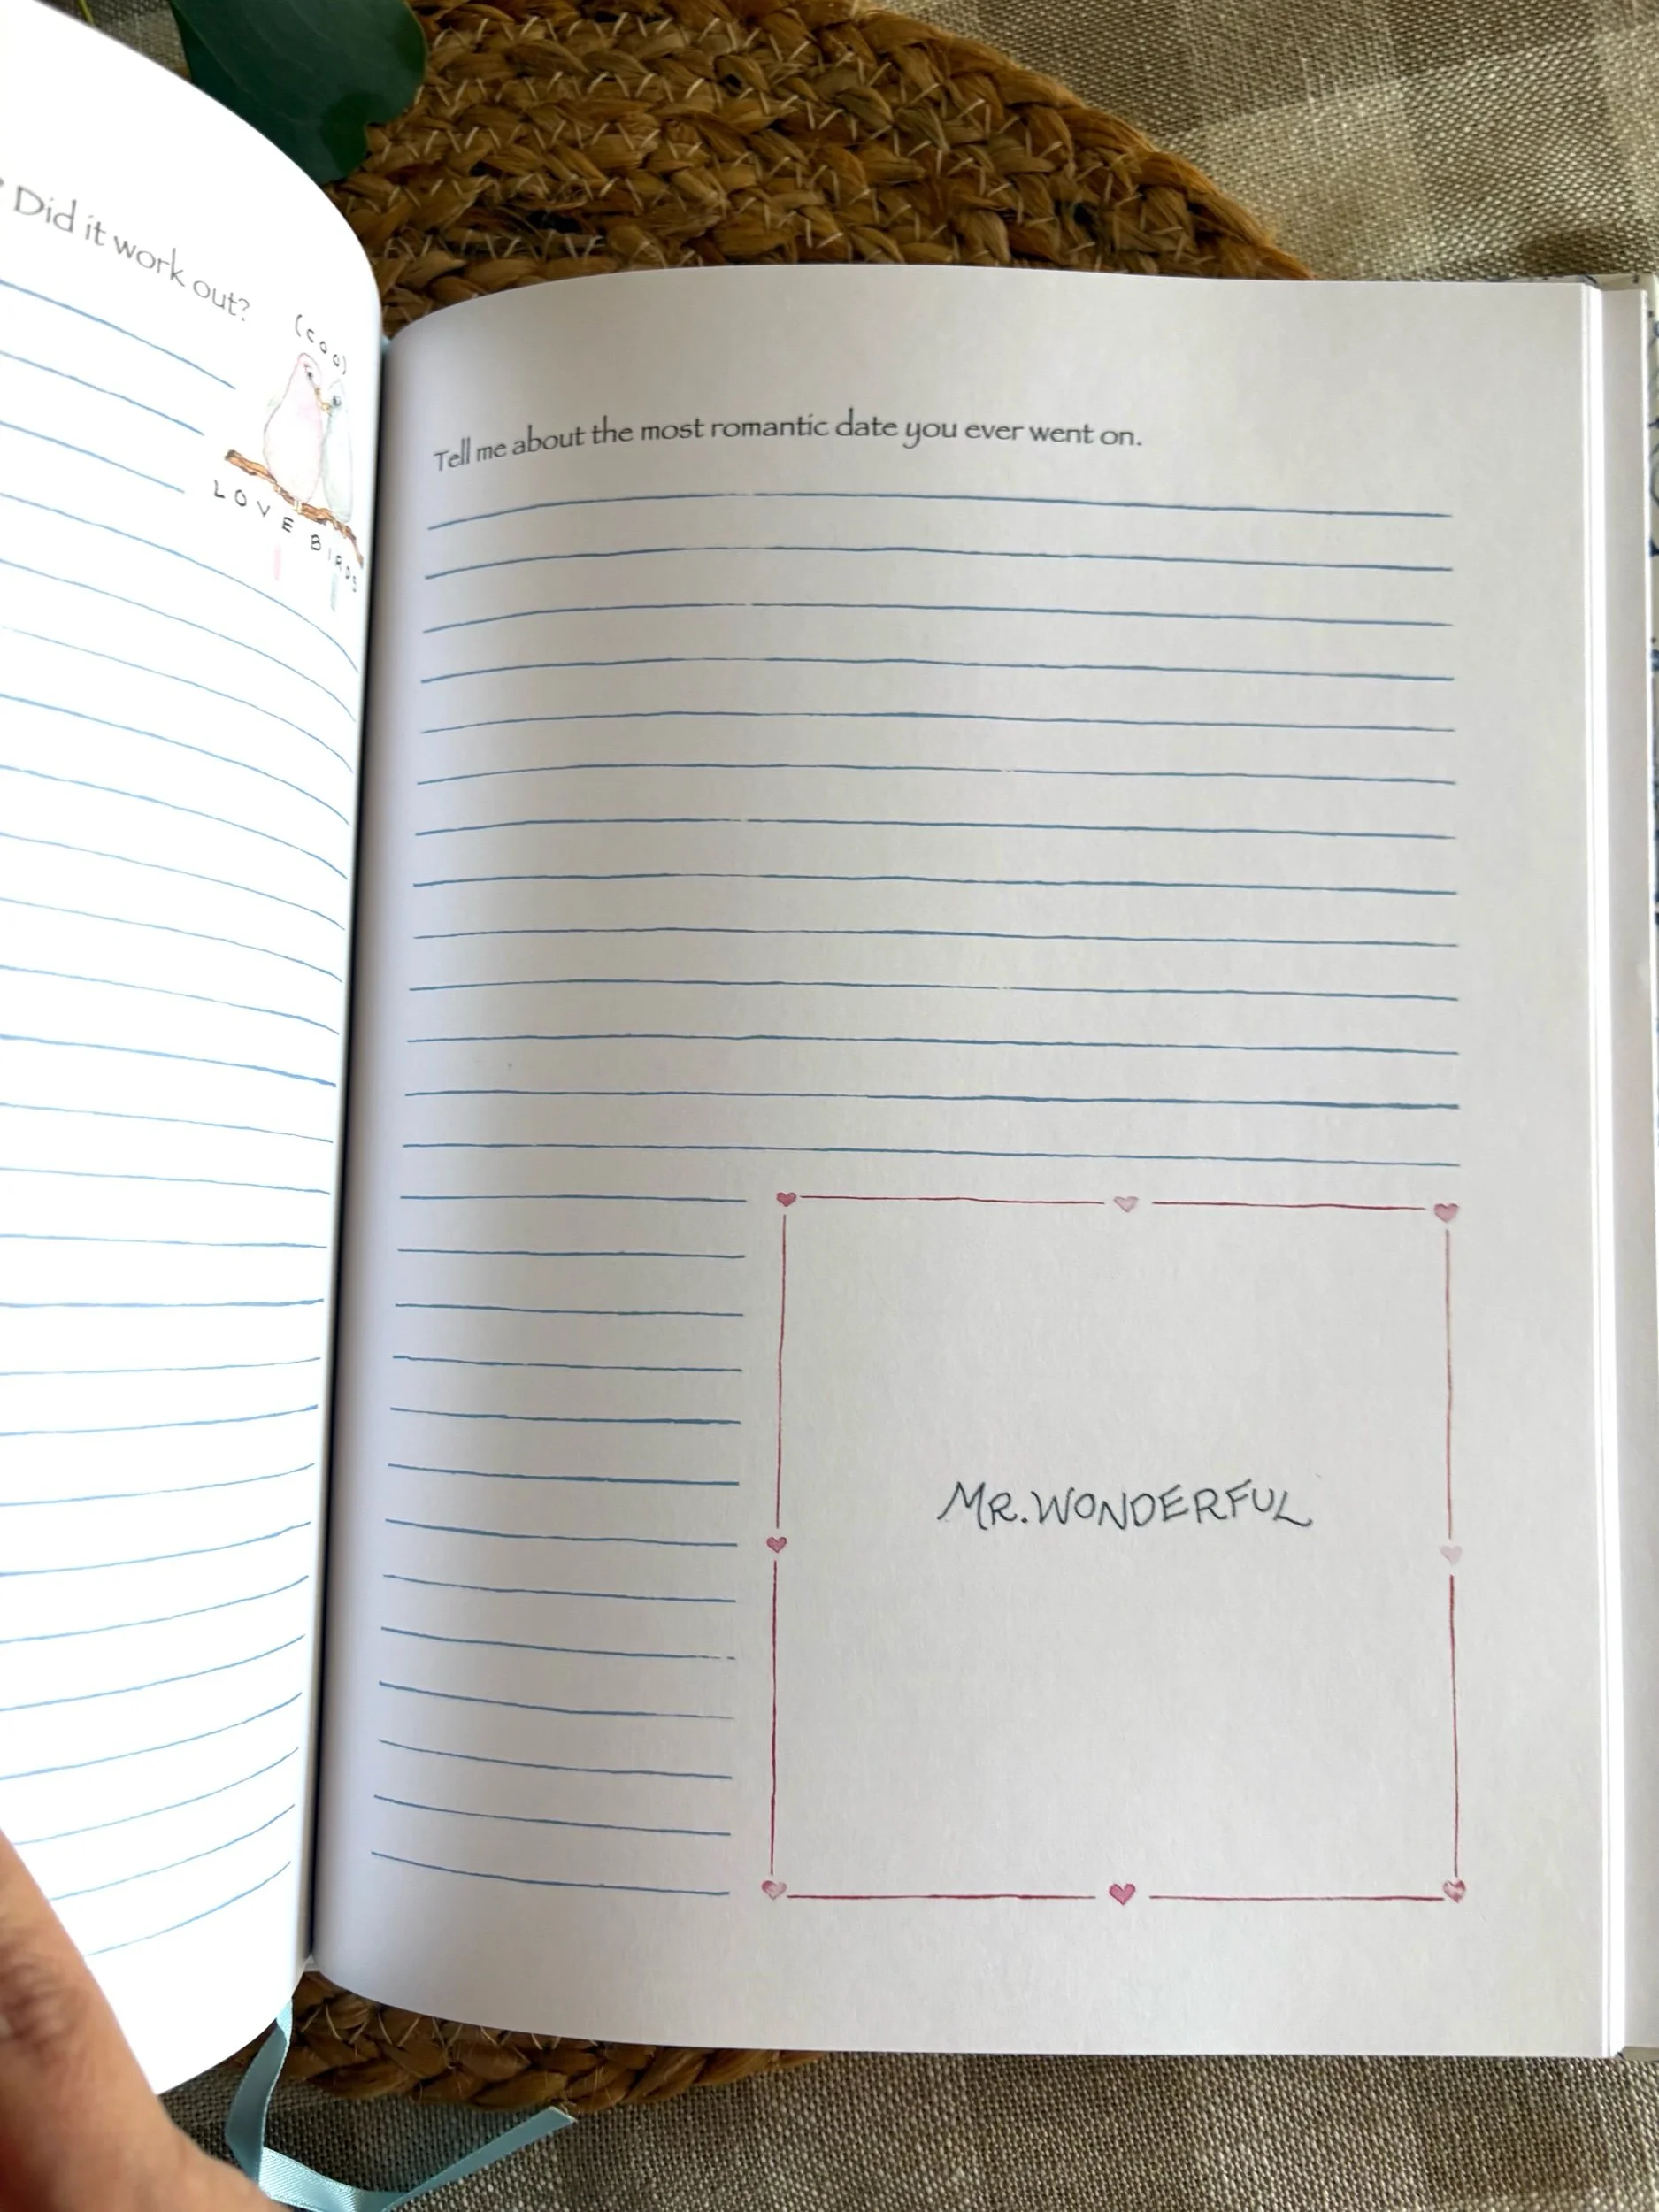 ? Did it work out?
(coo)
LOVE BIRDS
Tell me about the most romantic date you ever went on.
MR. WONDERFUL